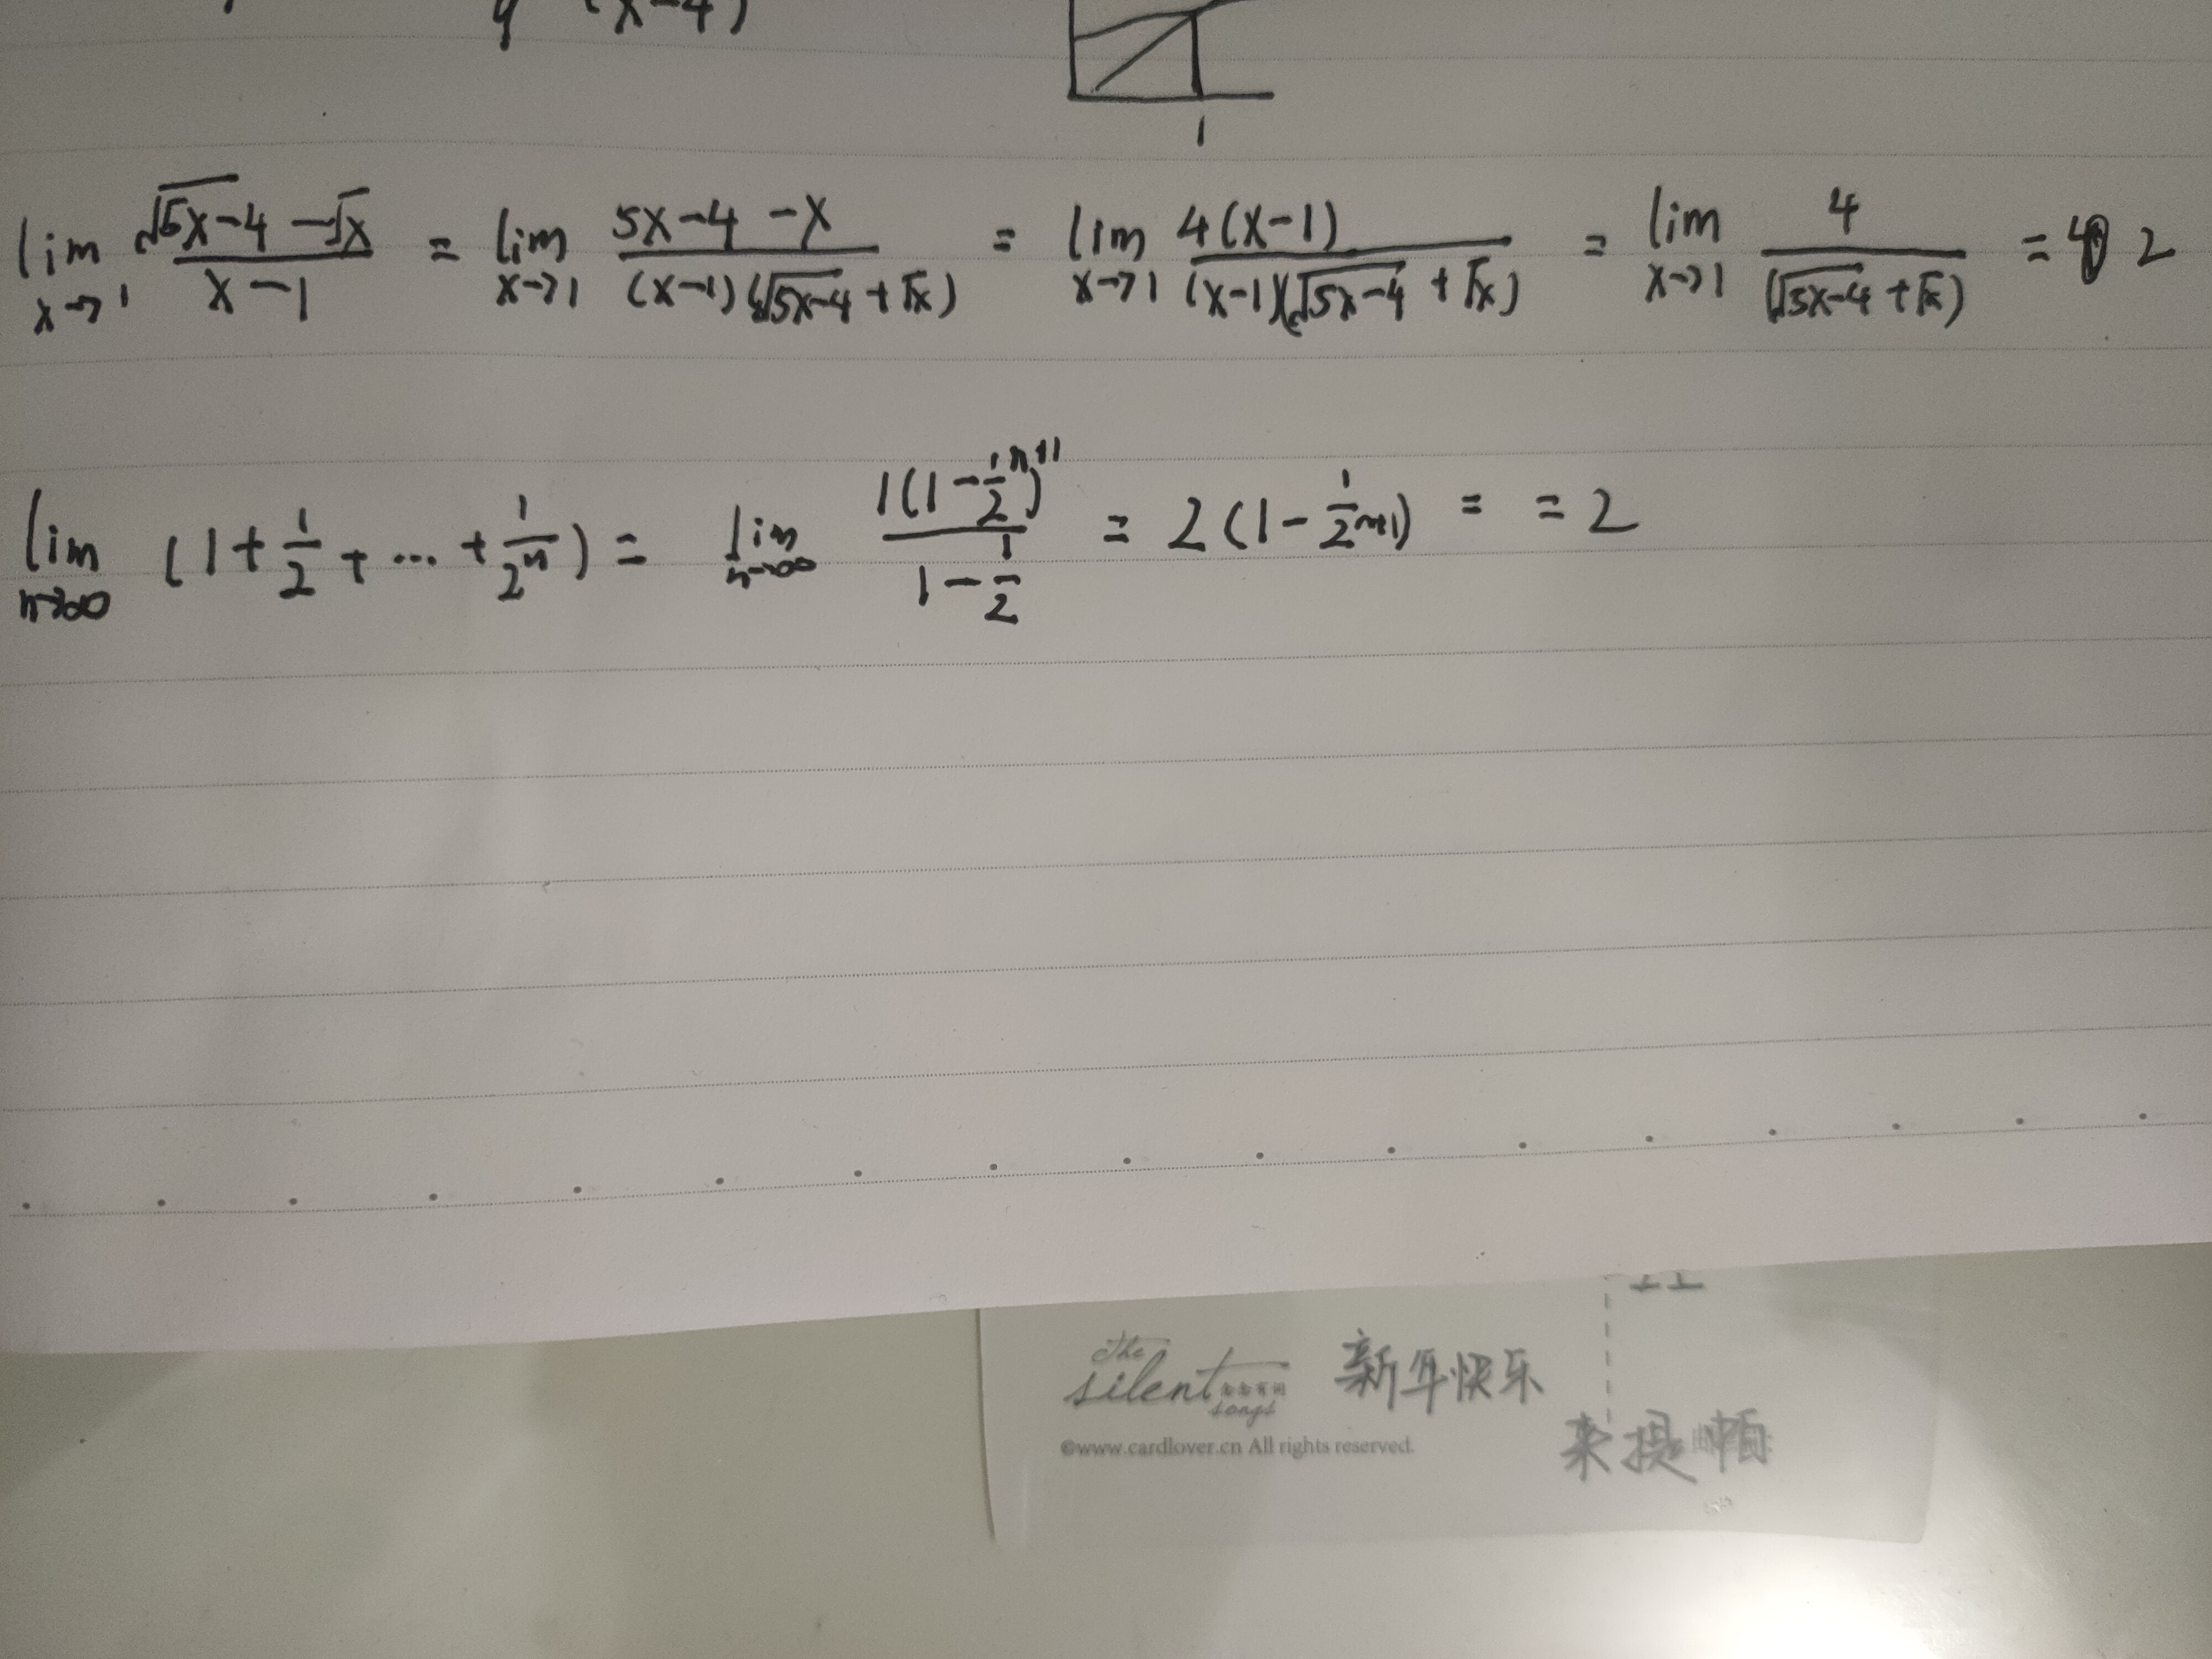 y (x-4)
1
lim x→1 (√5x-4 - √x)/(x-1) = lim x→1 (5x-4-x)/((x-1)(√5x-4 + √x)) = lim x→1 4(x-1)/((x-1)(√5x-4 + √x)) = lim x→1 4/(√5x-4 + √x) = 2
lim n→∞ (1 + 1/2 + ... + 1/2^n) = lim n→∞ 1(1-1/2)^n+1/(1-1/2) = 2(1-1/2^n+1) = = 2
the
silent 新年快乐
songs
©www.cardlover.cn All rights reserved.